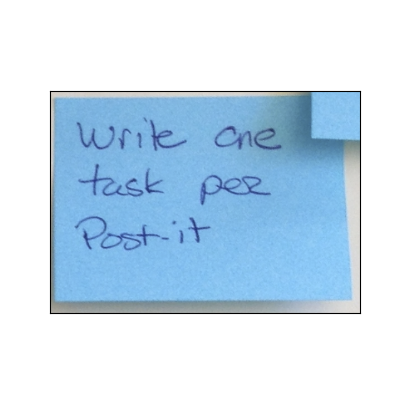 Write one
task per
Post-it